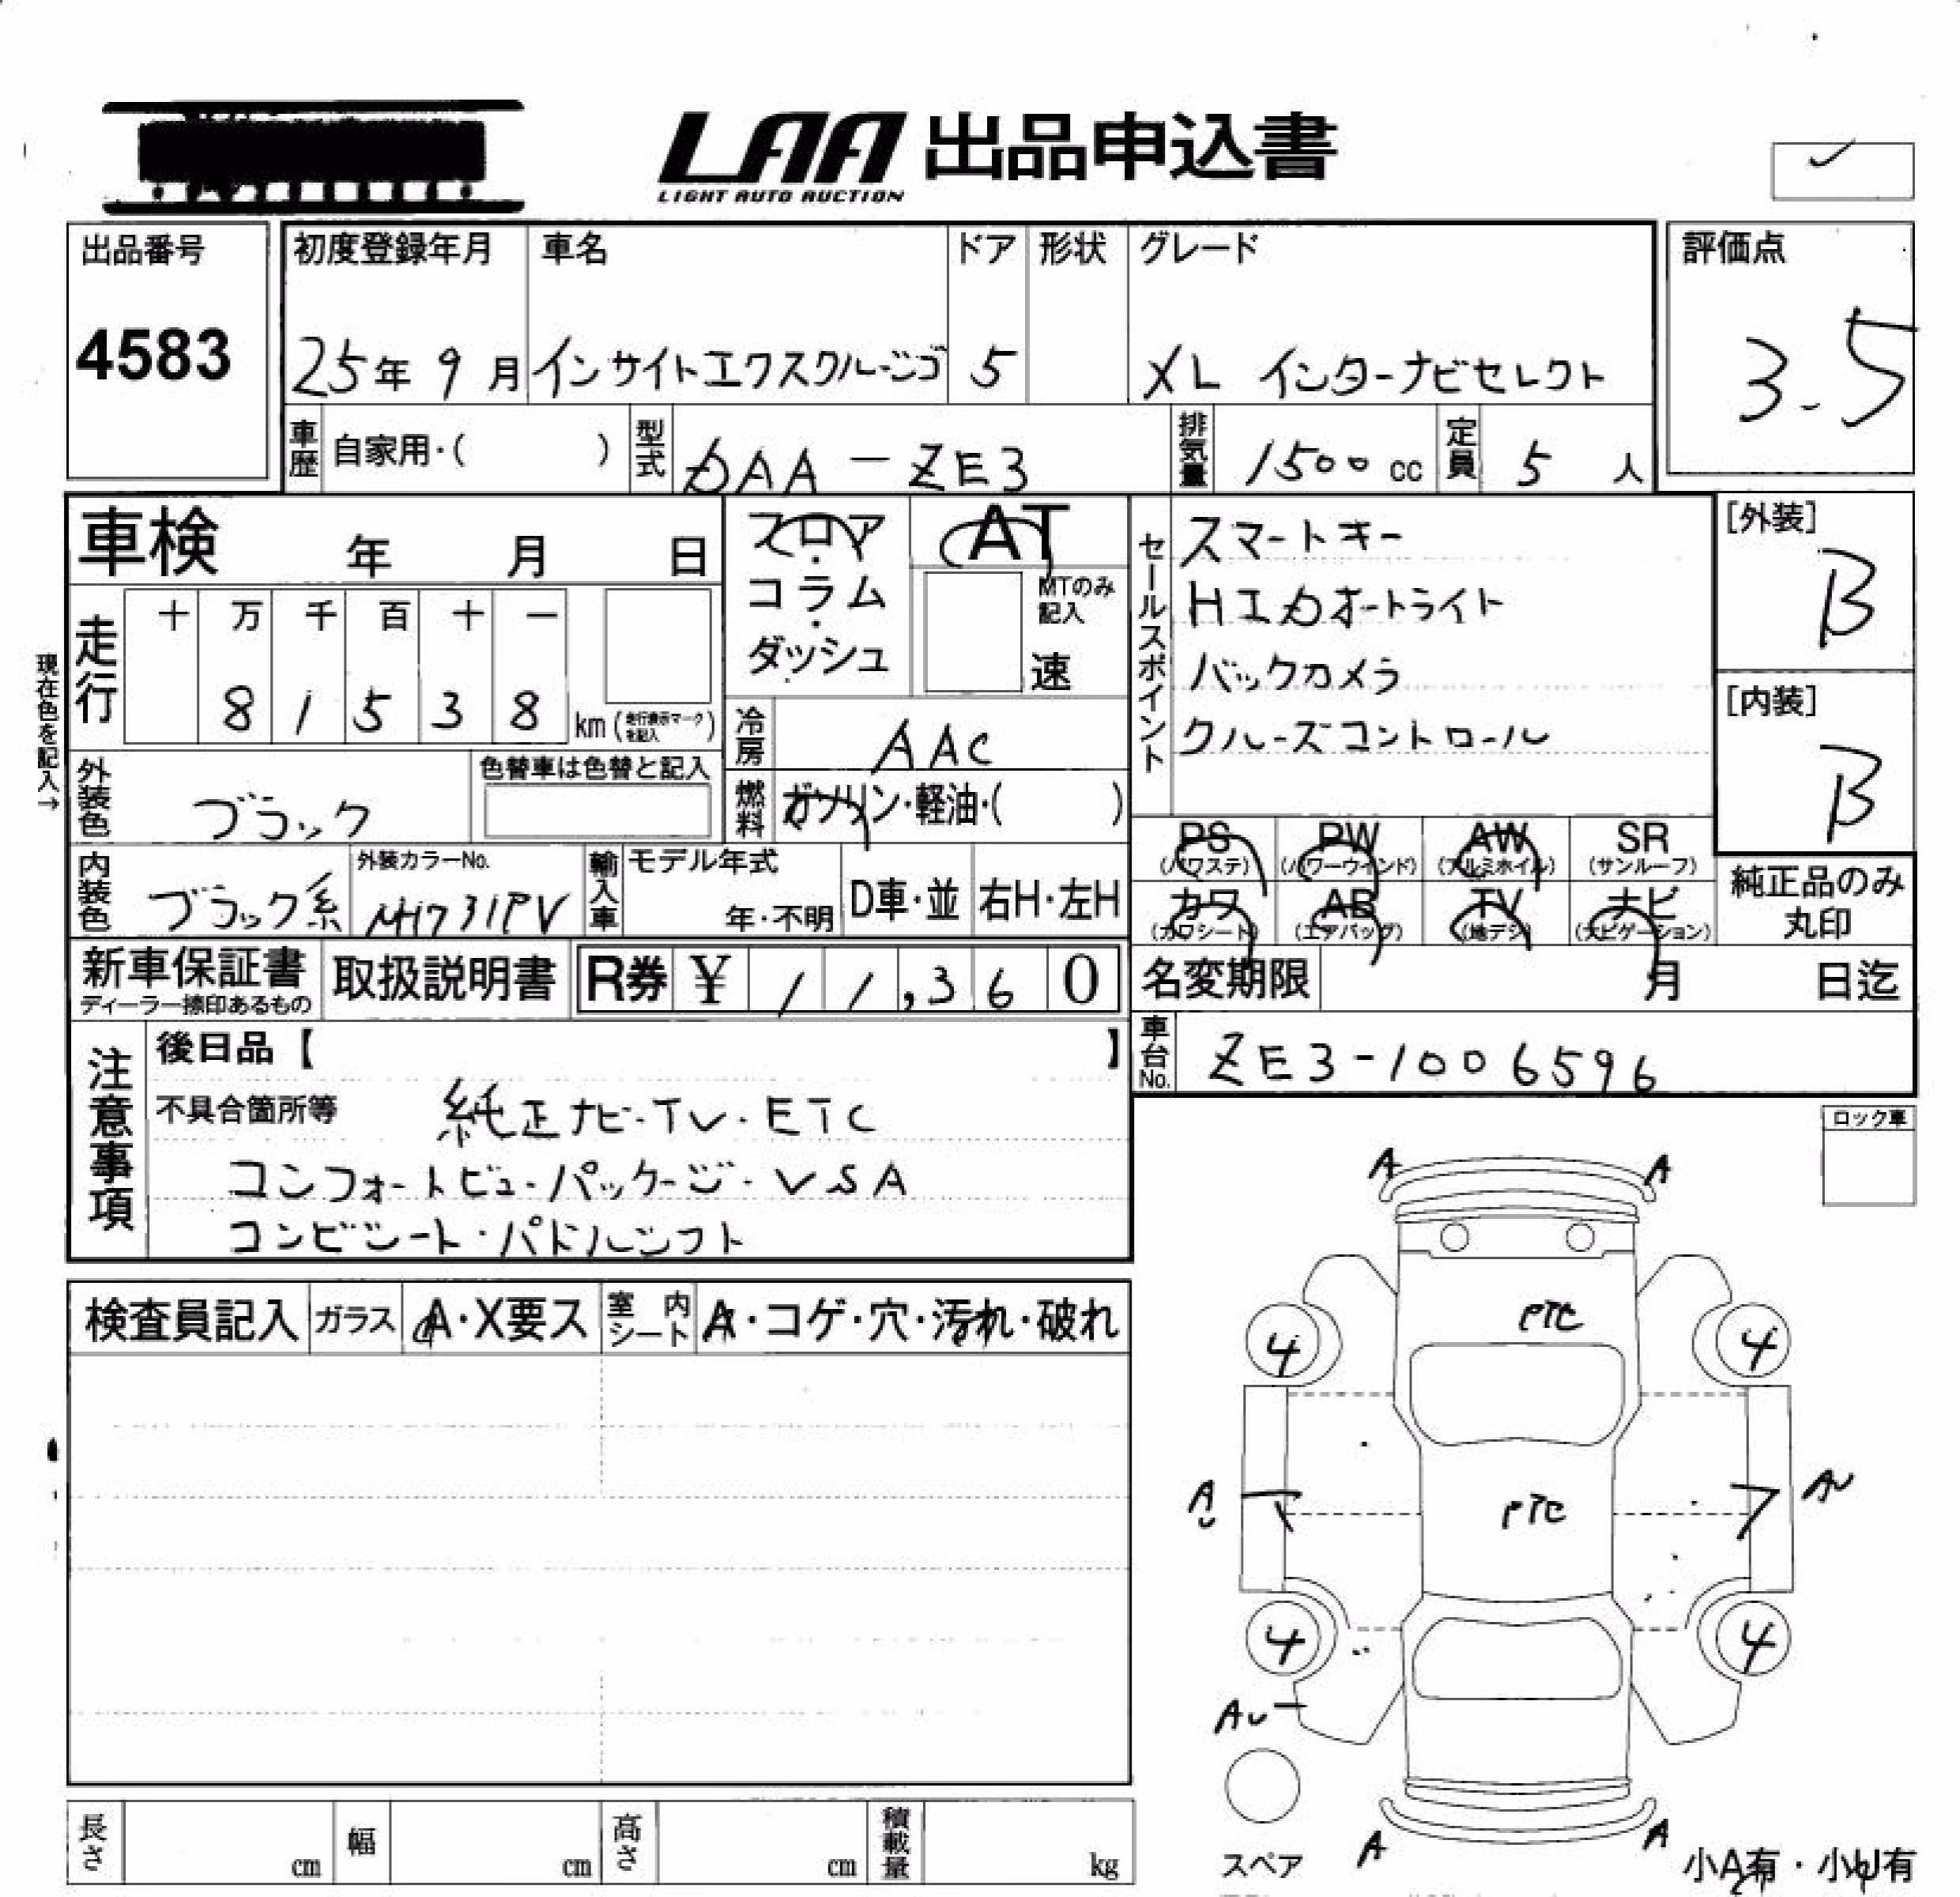 LAA 出品申込書
LIGHT AUTO AUCTION
出品番号
4583
初度登録年月 車名 ドア 形状 グレード
25年 9月 インサイトエクスクルーシブ 5 XL インターナビセレクト
評価点
3.5
車歴 自家用・( ) 型式 DAA-ZE3 排気量 1500 cc 定員 5 人
車検 年 月 日
フロア・コラム・ダッシュ
AT
MTのみ記入
速
セールスポイント
スマートキー
HIDオートライト
バックカメラ
クルーズコントロール
[外装]
B
[内装]
B
現在色を記入→
走行 十 万 千 百 十 一
8 1 5 3 8 km (走行表示マークを記入)
冷房 AAC
外装色 ブラック 色替車は色替と記入
燃料 ガソリン・軽油・( )
PS (パワステ) PW (パワーウィンド) AW (アルミホイル) SR (サンルーフ)
カワ (カワシート) AB (エアバッグ) TV (地デジ) ナビ (ナビゲーション)
純正品のみ丸印
内装色 ブラック系 外装カラーNo. NH731PV 輸入車 モデル年式 年・不明 D車・並 右H・左H
新車保証書 ディーラー捺印あるもの 取扱説明書 R券 ¥ 11,360
名変期限 月 日迄
車台No. ZE3-1006596
注意事項
後日品【 】
不具合箇所等 純正ナビ・TV・ETC
コンフォートビューパッケージ・VSA
コンビシート・パドルシフト
ロック車
検査員記入 ガラス A・X要ス 室内シート A・コゲ・穴・汚れ・破れ
A A
PTC
4 4
A U PTC AU
4 4
AU
スペア
A A
小A有・小U有
長さ cm 幅 cm 高さ cm 積載量 kg